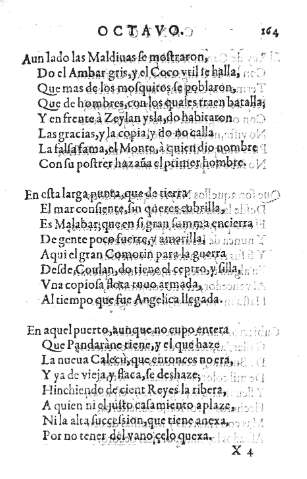 OCTAVO. 164
Aun lado las Maldiuas se mostraron,
Do el Ambar gris, y el Coco vtil se halla,
Que mas de los mosquitos se poblaron,
Que de hombres, con los quales traen batalla;
Y en frente à Zeylan ysla, do habitaron
Las gracias, y la copia, y do no calla
La falsa fama, el Monte, à quien dio nombre
Con su postrer hazaña el primer hombre.
En esta larga punta, que de tierra
El mar consiente, sin querer cubrilla,
Es Malabar, que en si gran summa encierra
De gente poco fuerte, y amarilla;
Aqui el gran Comorin para la guerra
Desde Coulan, do tiene el ceptro, y silla,
Vna copiosa flota tuuo armada,
Al tiempo que fue Angelica llegada.
En aquel puerto, aunque no cupo entera
Que Pandaràne tiene, y el que haze
La nueua Calecù, que entonces no era,
Y ya de vieja, y flaca, se deshaze;
Hinchiendo de cient Reyes la ribera,
A quien ni el justo casamiento aplaze,
Ni la alta succession, que tiene anexa,
Por no tener del vano çelo quexa.
X 4